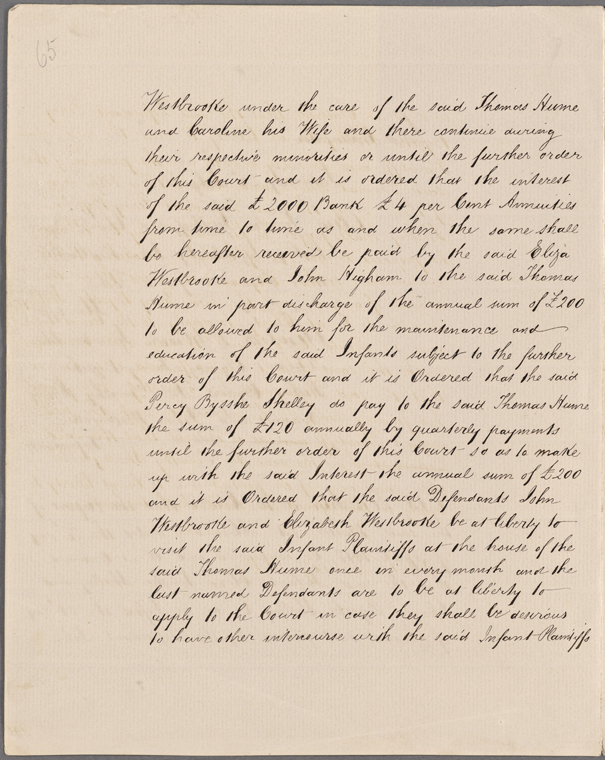 65
Westbrooke under the care of the said Thomas Hume
and Caroline his Wife and there continue during
their respective minorities or until the further order
of this Court and it is ordered that the interest
of the said £2000 Bank £4 per Cent Annuities
from time to time as and when the same shall
be hereafter received be paid by the said Eliza
Westbrooke and John Higham to the said Thomas
Hume in part discharge of the annual sum of £200
to be allowed to him for the maintenance and
education of the said Infants subject to the further
order of this Court and it is Ordered that the said
Percy Bysshe Shelley do pay to the said Thomas Hume
the sum of £120 annually by quarterly payments
until the further order of this Court so as to make
up with the said Interest the annual sum of £200
and it is Ordered that the said Defendants John
Westbrooke and Elizabeth Westbrooke be at liberty to
visit the said Infant Plaintiffs at the house of the
said Thomas Hume once in every month and the
last named Defendants are to be at liberty to
apply to the Court in case they shall be desirous
to have other intercourse with the said Infant Plaintiffs